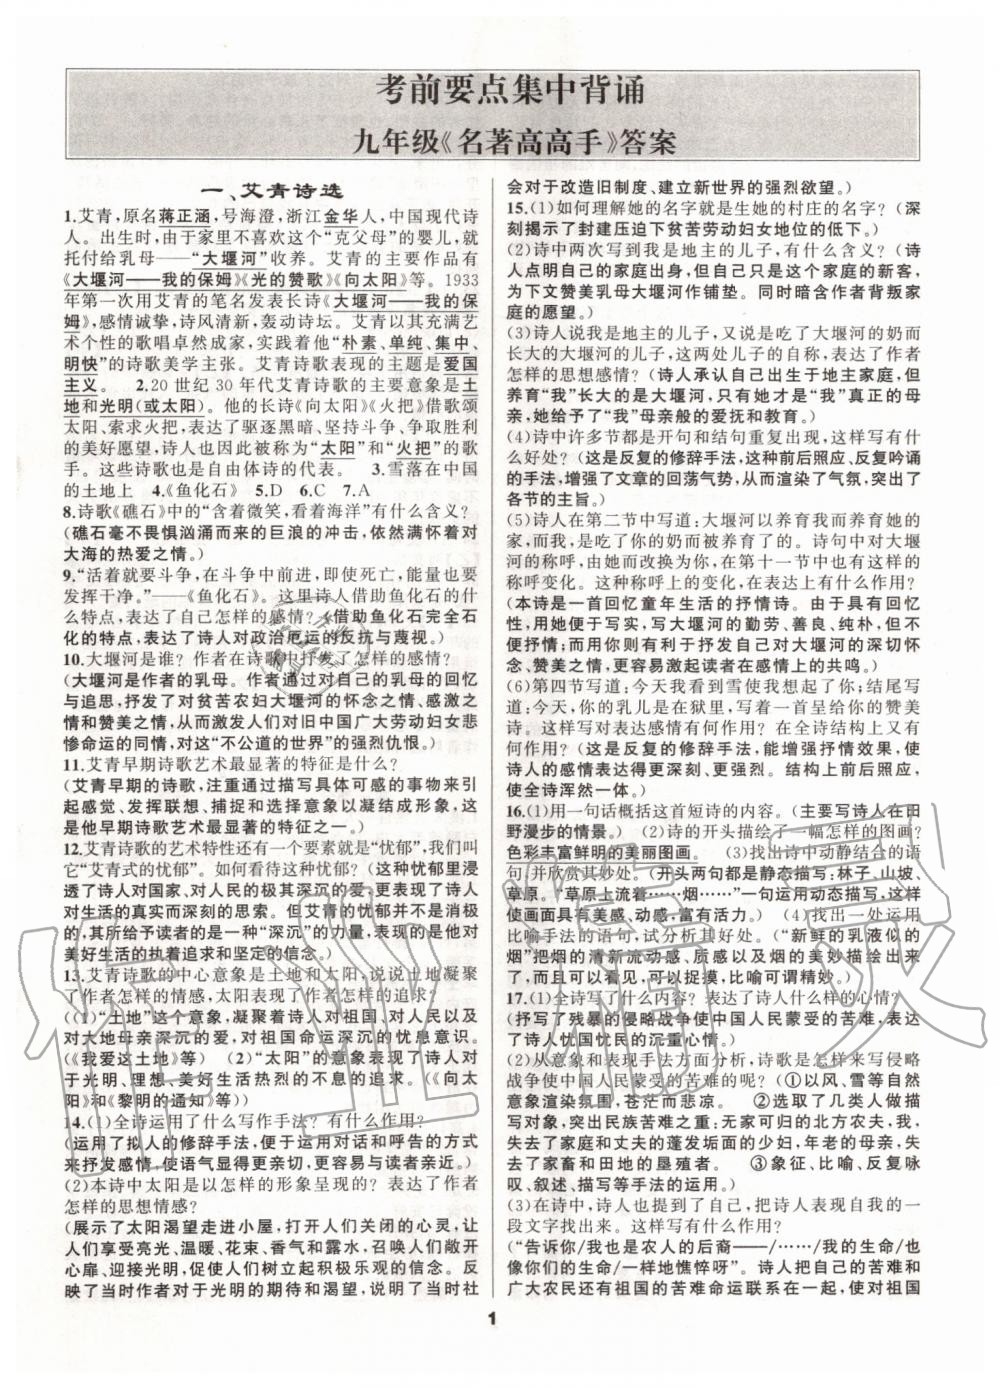 考前要点集中背诵
九年级《名著高高手》答案
一、艾青诗选
1.艾青，原名蒋正涵，号海澄，浙江金华人，中国现代诗
人。出生时，由于家里不喜欢这个“克父母”的婴儿，就
托付给乳母——“大堰河”收养。艾青的主要作品有
《大堰河——我的保姆》《光的赞歌》《向太阳》等。1933
年第一次用艾青的笔名发表长诗《大堰河——我的保
姆》，感情诚挚，诗风清新，轰动诗坛。艾青以其充满艺
术个性的歌唱卓然成家，实践着他“朴素、单纯、集中、
明快”的诗歌美学主张。艾青诗歌表现的主题是爱国
主义。 2.20世纪30年代艾青诗歌的主要意象是土
地和光明(或太阳)。他的长诗《向太阳》《火把》借歌颂
太阳、索求火把，表达了驱逐黑暗、坚持斗争、争取胜利
的美好愿望，诗人也因此被称为“太阳”和“火把”的歌
手。这些诗歌也是自由体诗的代表。 3.雪落在中国
的土地上 4.《鱼化石》 5.D 6.C 7.A
8.诗歌《礁石》中的“含着微笑，看着海洋”有什么含义？
(礁石毫不畏惧汹涌而来的巨浪的冲击，依然满怀着对
大海的热爱之情。)
9.“活着就要斗争，在斗争中前进，即使死亡，能量也要
发挥干净。”——《鱼化石》。这里诗人借助鱼化石的什
么特点，表达了自己怎样的感情？(借助鱼化石完全石
化的特点，表达了诗人对政治厄运的反抗与蔑视。)
10.大堰河是谁？作者在诗歌中抒发了怎样的感情？
(大堰河是作者的乳母。作者通过对自己的乳母的回忆
与追思，抒发了对贫苦农妇大堰河的怀念之情，感激之
情和赞美之情，从而激发人们对旧中国广大劳动妇女悲
惨命运的同情，对这“不公道的世界”的强烈仇恨。)
11.艾青早期诗歌艺术最显著的特征是什么？
(艾青早期的诗歌，注重通过描写具体可感的事物来引
起感觉、发挥联想、捕捉和选择意象以凝结成形象，这
是他早期诗歌艺术最显著的特征之一。)
12.艾青诗歌的艺术特性还有一个要素就是“忧郁”，我们叫
它“艾青式的忧郁”。如何看待这种忧郁？(这种忧郁里浸
透了诗人对国家、对人民的极其深沉的爱，更表现了诗人
对生活的真实而深刻的思索。但艾青的忧郁并不是消极
的，其所给予读者的是一种“深沉”的力量，表现的是他对
美好生活的执着追求和坚定的信念。)
13.艾青诗歌的中心意象是土地和太阳，说说土地凝聚
了作者怎样的情感，太阳表现了作者怎样的追求？
((1)“土地”这个意象，凝聚着诗人对祖国、对人民以及
对大地母亲深沉的爱，对祖国命运深沉的忧患意识。
(《我爱这土地》等) (2)“太阳”的意象表现了诗人对
于光明、理想、美好生活热烈的不息的追求。(《向太
阳》和《黎明的通知》等))
14.(1)全诗运用了什么写作手法？有什么作用？
(运用了拟人的修辞手法，便于运用对话和呼告的方式
来抒发感情，使语气显得更亲切，更容易与读者亲近。)
(2)本诗中太阳是以怎样的形象呈现的？表达了作者
怎样的思想感情？
(展示了太阳渴望走进小屋，打开人们关闭的心灵，让
人们享受亮光、温暖、花束、香气和露水，召唤人们敞开
心扉、迎接光明，获得向上、积极乐观的信念。反
映了当时作者对于光明的期待和渴望，说明了当时社
会对于改造旧制度、建立新世界的强烈欲望。)
15.(1)如何理解她的名字就是生她的村庄的名字？(深
刻揭示了封建压迫下贫苦劳动妇女地位的低下。)
(2)诗中两次写到我是地主的儿子，有什么含义？(诗
人点明自己的家庭出身，但自己只是这个家庭的新客，
为下文赞美乳母大堰河作铺垫。同时暗含作者背叛家
庭的愿望。)
(3)诗人说我是地主的儿子，又说是吃了大堰河的奶而
长大的大堰河的儿子，这两处儿子的自称，表达了作者
怎样的思想感情？(诗人承认自己出生于地主家庭，但
养育“我”长大的是大堰河，只有她才是“我”真正的母
亲，她给予了“我”母亲般的爱抚和教育。)
(4)诗中许多节都是开句和结句重复出现，这样写有什
么好处？(这是反复的修辞手法，这种前后照应、反复吟诵
的手法，增强了文章的回荡气势，从而渲染了气氛，突出了
各节的主旨。)
(5)诗人在第二节中写道：大堰河以养育我而养育她的
家，而我，是吃了你的奶而被养育了的。诗句中对大堰
河的称呼，由她而改换成你，在第十一节中也有这样的
称呼变化。这种称呼上的变化，在表达上有什么作用？
(本诗是一首回忆童年生活的抒情诗。由于具有回忆
性，用她便于写实，写大堰河的勤劳、善良、纯朴，但不
免冷静；而用你则有利于抒发自己对大堰河的深切怀
念、赞美之情，更容易激起读者在感情上的共鸣。)
(6)第四节写道：今天我看到雪使我想起了你；结尾写
道：今天，你的乳儿是在狱里，写着一首呈给你的赞美
诗。这样写对表达感情有何作用？在全诗结构上又有
何作用？(这是反复的修辞手法，能增强抒情效果，使
诗人的感情表达得更深刻、更强烈。结构上前后照应，
使全诗浑然一体。)
16.(1)用一句话概括这首短诗的内容。(主要写诗人在田
野漫步的情景。) (2)诗的开头描绘了一幅怎样的图画？
色彩丰富鲜明的美丽图画。 (3)找出诗中动静结合的语
句，并欣赏其妙处。(开头两句都是静态描写：林子、山坡、
草原。“草原上流着……烟……”一句运用动态描写，这样
使画面具有美感、动感，富有活力。) (4)找出一处运用
比喻手法的语句，试分析其好处。(“新鲜的乳液似的
烟”把烟的清新流动感、质感以及烟的美妙描绘出来
了，而且可以看见，可以捉摸，比喻可谓精妙。)
17.(1)全诗写了什么内容？表达了诗人什么样的心情？
(抒写了残暴的侵略战争使中国人民蒙受的苦难，表达
了诗人忧国忧民的沉重心情。)
(2)从意象和表现手法方面分析，诗歌是怎样来写侵略
战争使中国人民蒙受的苦难的呢？(①以风、雪等自然
意象渲染氛围，苍茫而悲凉。 ②选取了几类人做描
写对象，突出民族苦难之重：无家可归的北方农夫，我，
失去了家庭和丈夫的蓬发垢面的少妇，年老的母亲，失
去了家畜和田地的垦殖者。 ③象征、比喻、反复咏
叹、叙述、描写等手法的运用。)
(3)在诗中，诗人也提到了自己，把诗人表现自我的一
段文字找出来。这样写有什么作用？
(“告诉你/我也是农人的后裔——/……/我的生命/也
像你们的生命/一样地憔悴呀”。诗人把自己的苦难和
广大农民还有祖国的苦难命运联系在一起，使对祖国
1